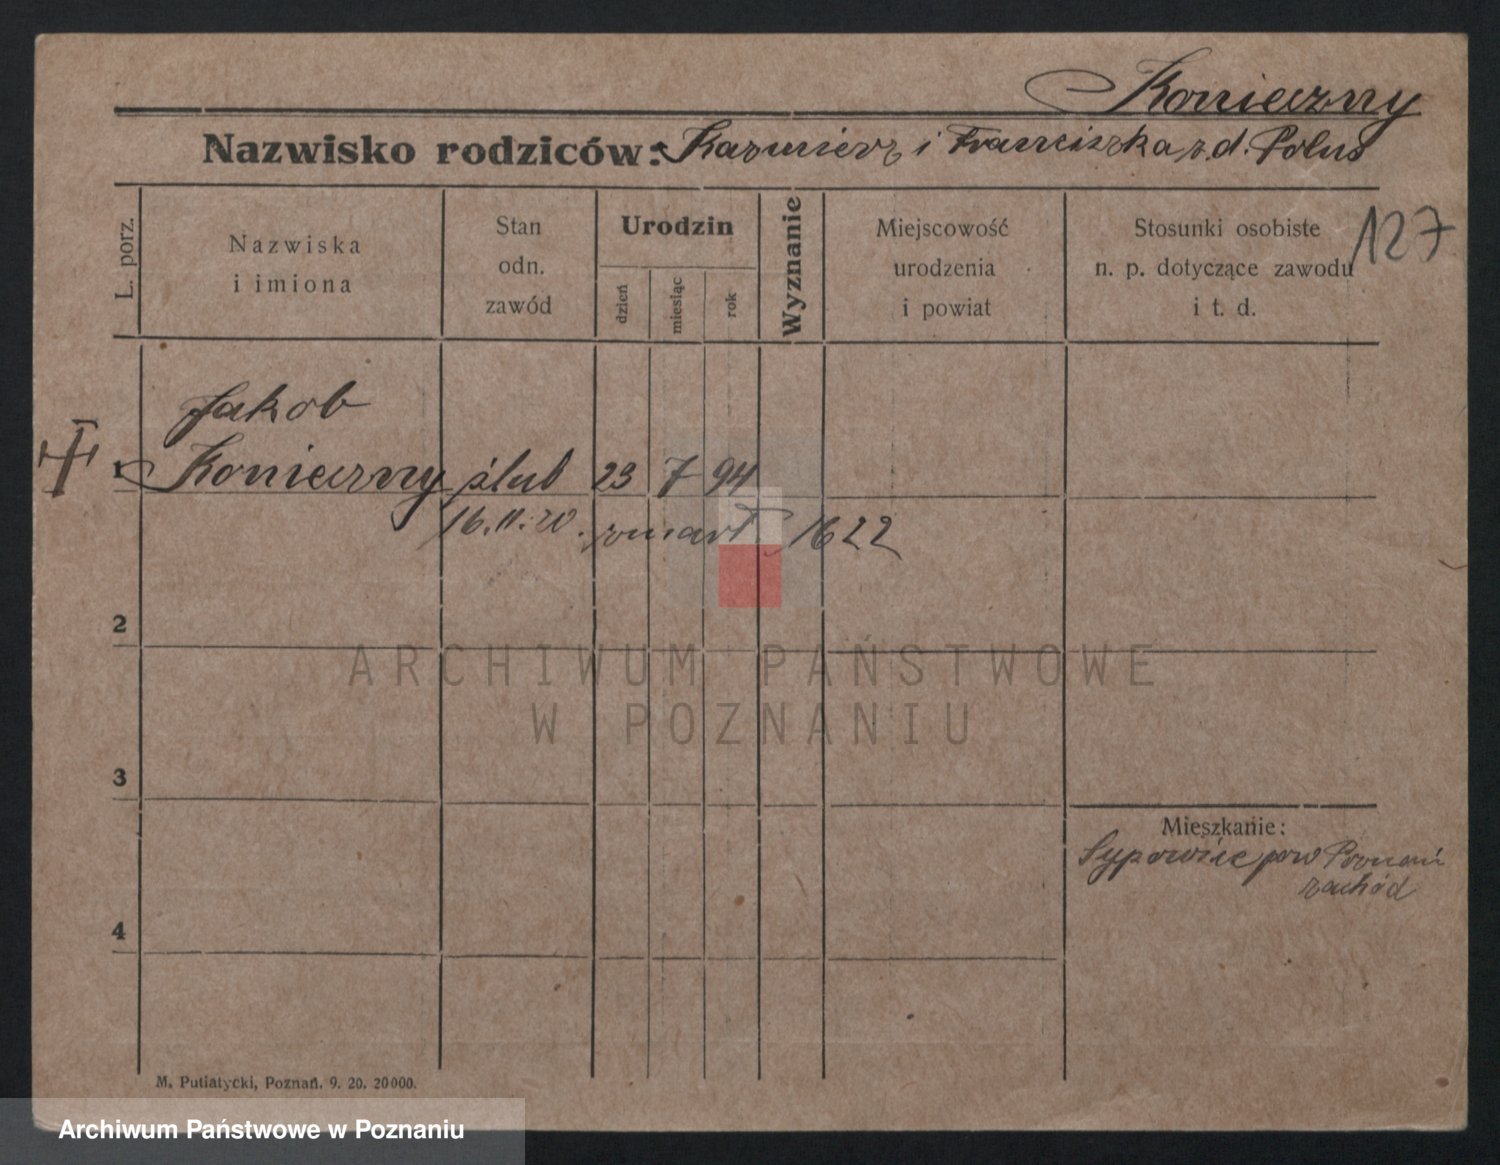 Konieczny
Nazwisko rodziców: Kazmierz i Franciszka z.d. Polus
127
L. porz.
Nazwiska
i imiona
Stan
odn.
zawód
Urodzin
dzień
miesiąc
rok
Wyznanie
Miejscowość
urodzenia
i powiat
Stosunki osobiste
n. p. dotyczące zawodu
i t. d.
Jakob
1 Konieczny ślub 23 7 94
16.11.20. zmarł 1622
2
ARCHIWUM PAŃSTWOWE
W POZNANIU
3
Mieszkanie:
pow Poznań
zachód
4
M. Putiatycki, Poznań. 9. 20. 20000.
Archiwum Państwowe w Poznaniu